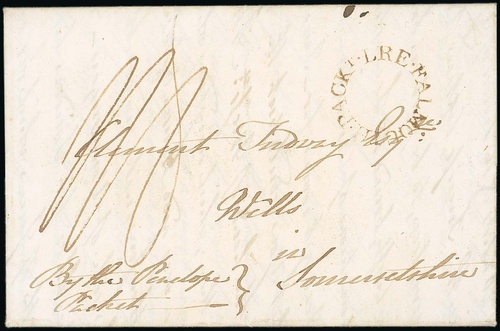 PACKT·LRE·FALMO
Clement Tudway Esqre
Wells
in
Somersetshire
By the Penelope
Packet